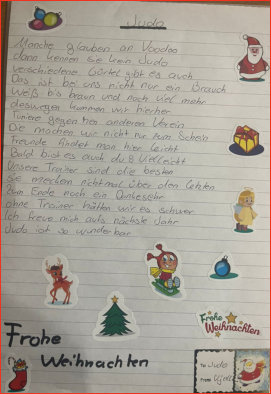 Judo
Manche glauben an Voodoo
dann kennen sie kein Judo
verschiedene Gürtel gibt es auch
Das ist bei uns nicht nur ein Brauch
Weiß bis braun und noch viel mehr
deswegen kommen wir hierher
Tuniere gegen den anderen Verein
Die machen wir nicht nur zum Schein
Freunde findet man hier leicht
Bald bist es auch du 8 Vielleicht
Unsere Trainer sind die besten
Sie meckern nichtmal über den
Zum Ende noch ein Dankesehr
ohne Trainer hätten wir es schwer
Ich freue mich aufs nächste Jahr
Judo ist so wunderbar
Frohe Weihnachten
Frohe
Weihnachten
To: Judo
From: